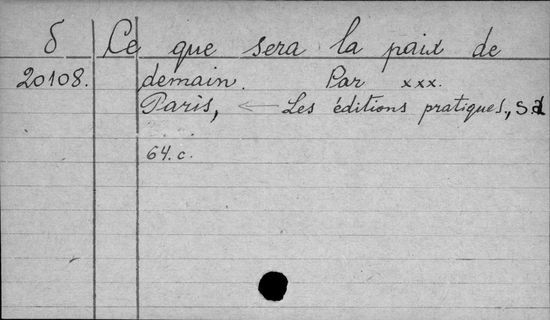 δ Ce que sera la paix de
20108. demain. Par xxx.
Paris, ← Les éditions pratiques, s.d
64.c.